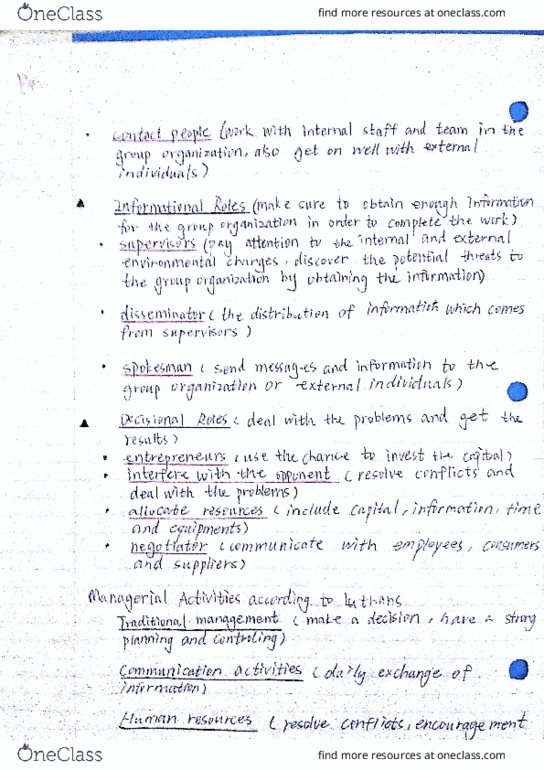 OneClass
find more resources at oneclass.com
• contact people (work with internal staff and team in the
group organization, also get on well with external
individuals)
▲ Informational Roles (make sure to obtain enough information
for the group organization in order to complete the work)
• supervisors (pay attention to the internal and external
environmental changes, discover the potential threats to
the group organization by obtaining the information)
• disseminator (the distribution of information which comes
from supervisors)
• spokesman (send messages and information to the
group organization or external individuals)
▲ Decisional Roles (deal with the problems and get the
results)
• entrepreneurs (use the chance to invest the capital)
• interfere with the opponent (resolve conflicts and
deal with the problems)
• allocate resources (include capital, information, time
and equipments)
• negotiator (communicate with employees, consumers
and suppliers)
Managerial Activities according to luthans
Traditional management (make a decision, have a strong
planning and controling)
Communication activities (daily exchange of
information)
Human resources (resolve conflicts, encouragement
OneClass
find more resources at oneclass.com